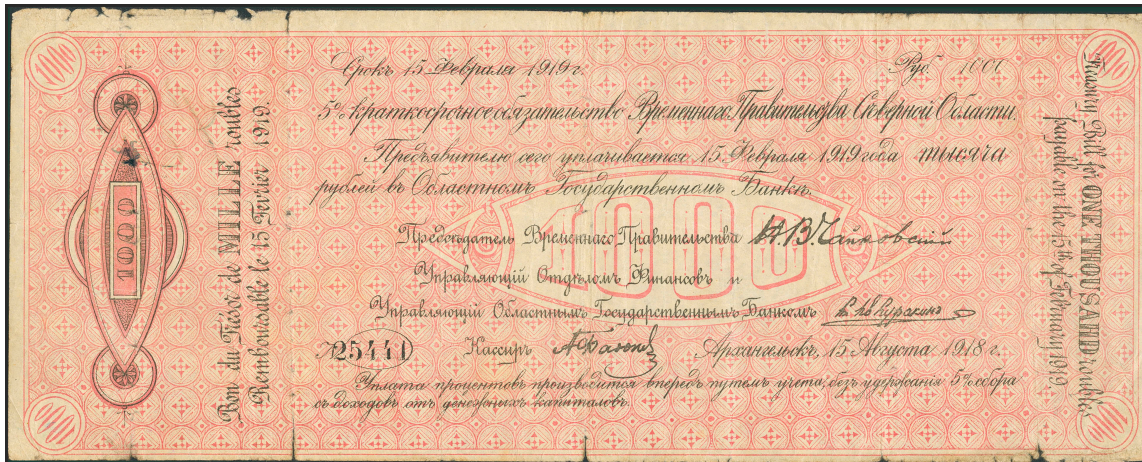 1000
Bon du Trésor de MILLE roubles
Remboursable le 15 Fevrier 1919.
Срокъ 15 Февраля 1919 г.
Руб. 1000
5% краткосрочное обязательство Временнаго Правительства Сѣверной Области.
Предъявителю сего уплачивается 15 Февраля 1919 года тысяча
рублей въ Областномъ Государственномъ Банкѣ.
1000
Предсѣдатель Временнаго Правительства Н. В. Чайковскій
Управляющій Отдѣломъ Финансовъ и
Управляющій Областнымъ Государственнымъ Банкомъ
№ 25441
Кассиръ
Архангельскъ, 15 Августа 1918 г.
Уплата процентовъ производится впередъ путемъ учета, безъ удержанія 5% сбора
съ доходовъ отъ денежныхъ капиталовъ.
Treasury Bill for ONE THOUSAND roubles
payable on the 15th of February 1919.
1000
1000
1000
1000